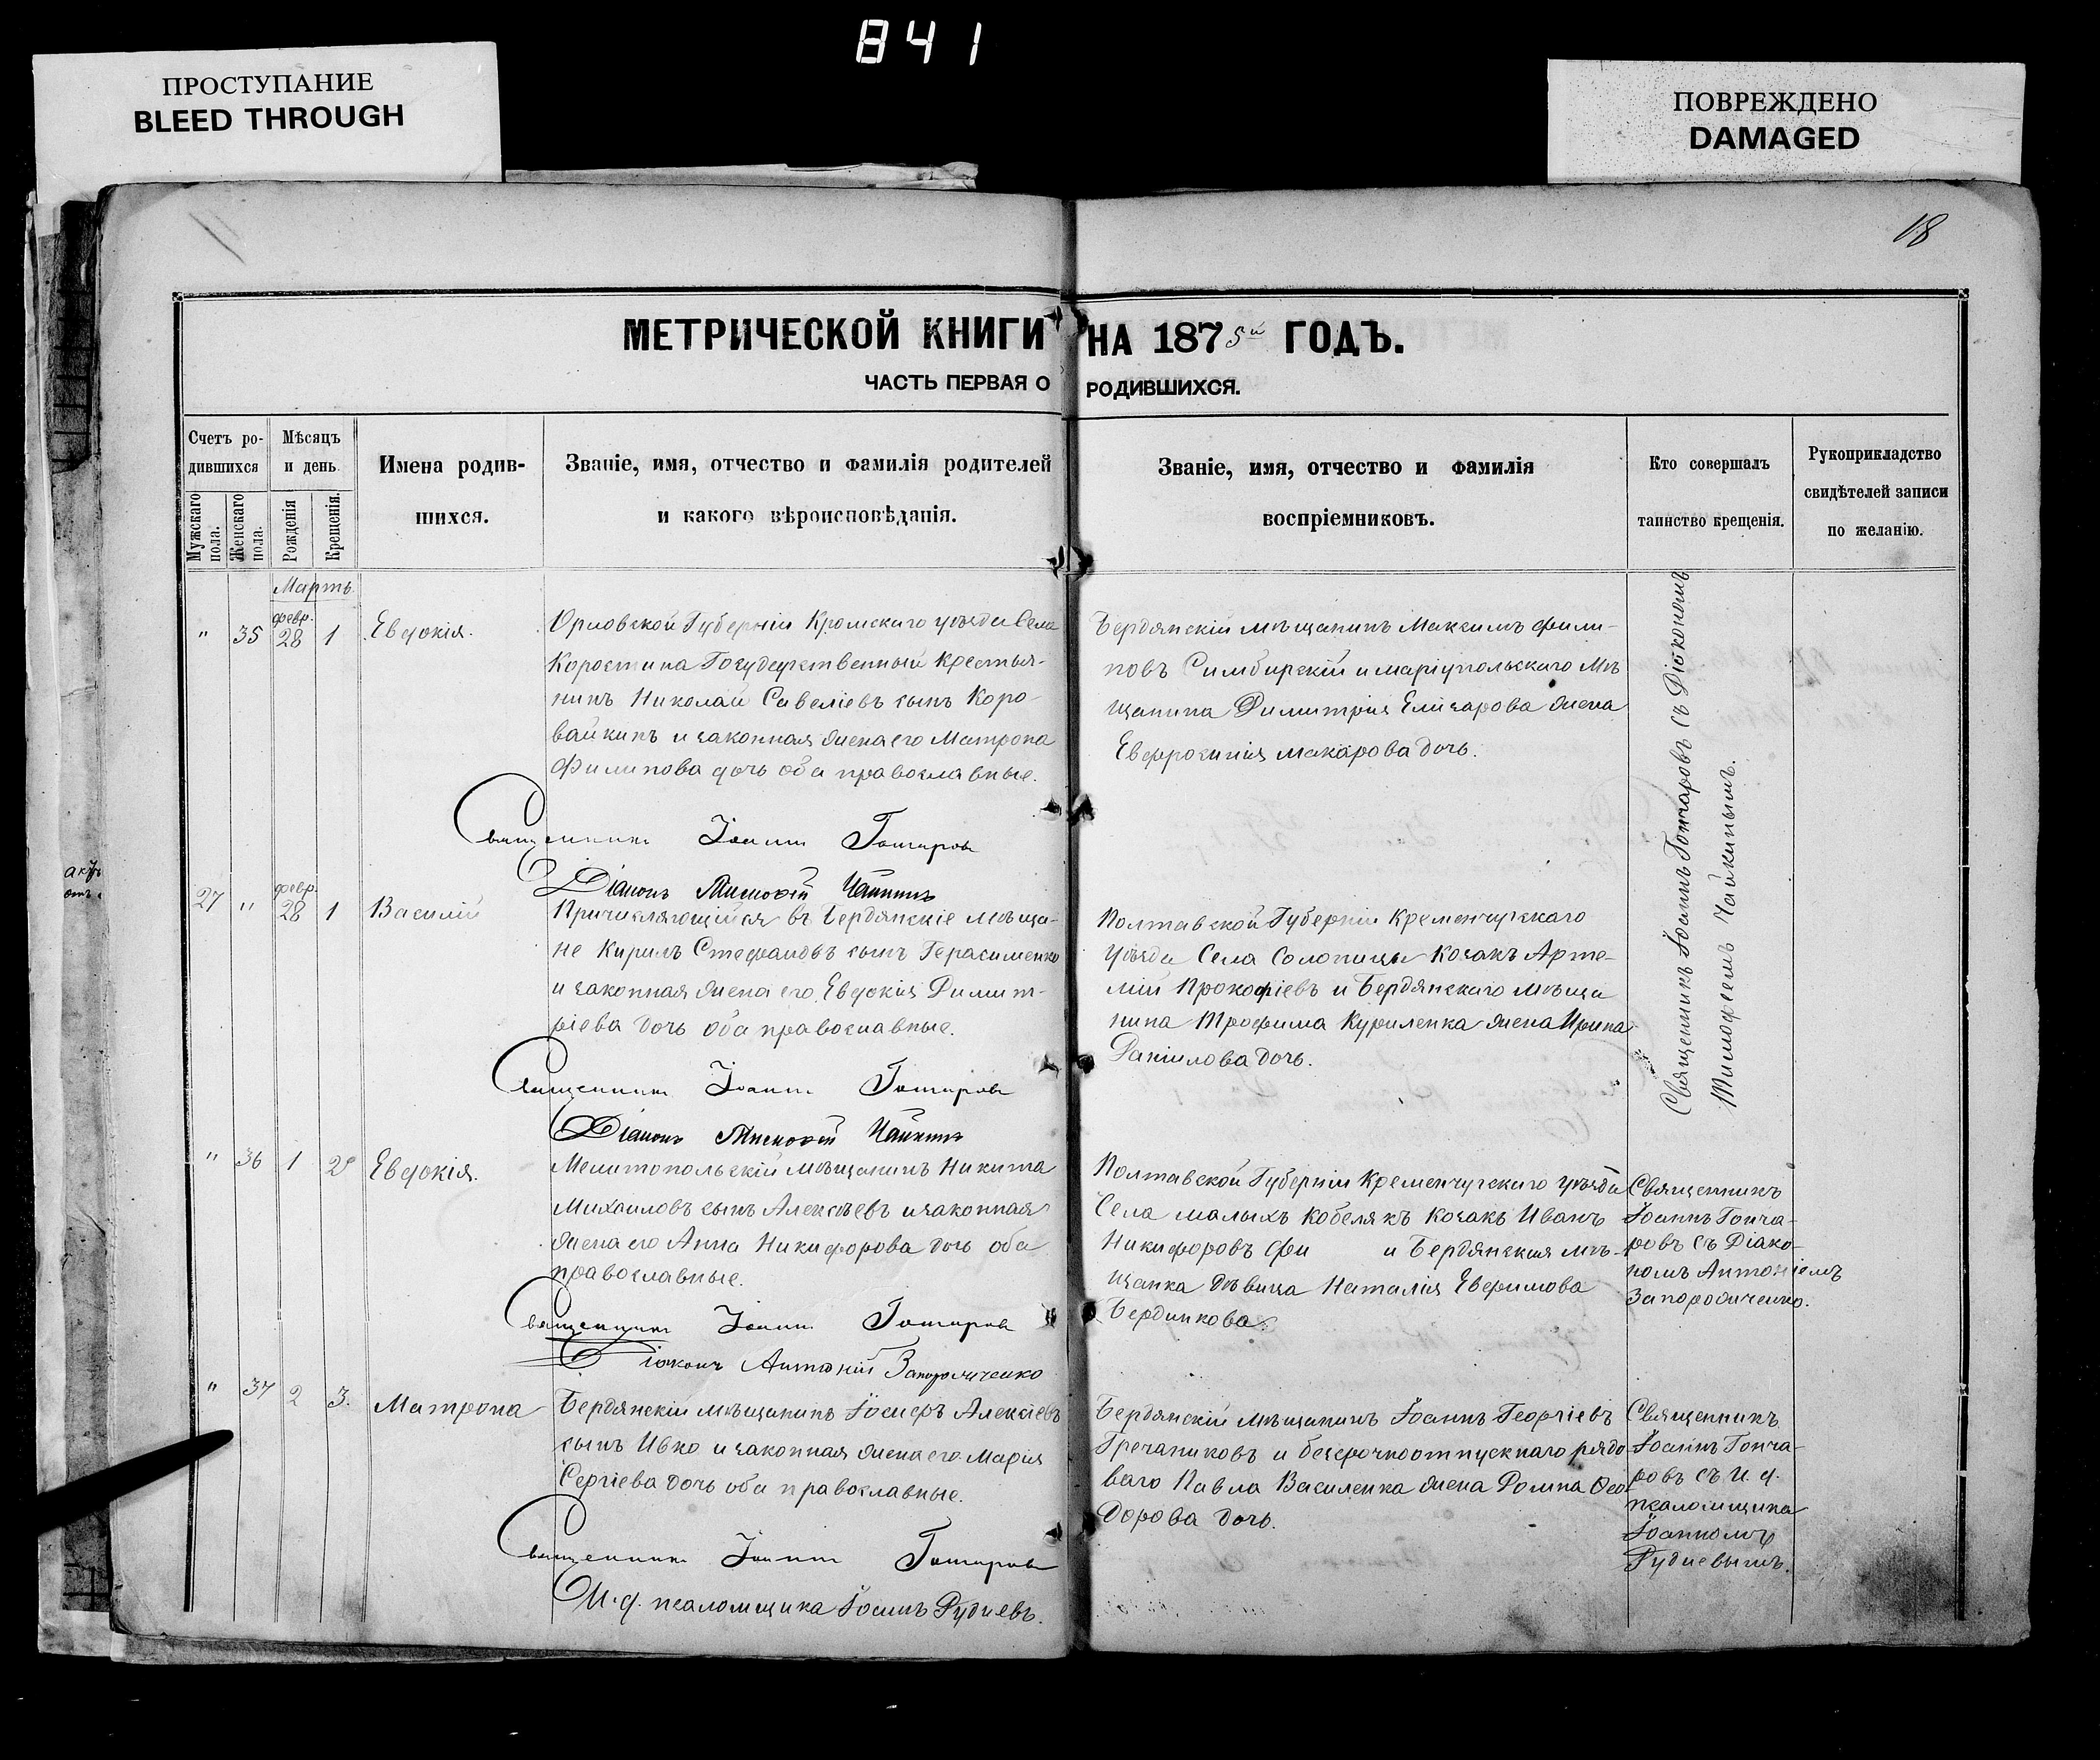 841
ПРОСТУПАНИЕ
BLEED THROUGH
ПОВРЕЖДЕНО
DAMAGED
18
МЕТРИЧЕСКОЙ КНИГИ НА 1875й ГОДЪ.
ЧАСТЬ ПЕРВАЯ О РОДИВШИХСЯ.
Счетъ ро-
дившихся
Мужскаго пола.
Женскаго пола.
Мѣсяцъ
и день
Рожденія
Крещенія.
Имена родив-
шихся.
Званіе, имя, отчество и фамилія родителей
и какого вѣроисповѣданія.
Званіе, имя, отчество и фамилія
воспріемниковъ.
Кто совершалъ
таинство крещенія.
Рукоприкладство
свидѣтелей записи
по желанію.
Мартъ
" 35 февр. 28 1 Евдокія.
Орловской Губерніи Кромскаго уѣзда Села
Коростина Государственный Крестья-
нинъ Николай Савеліевъ сынъ Коро-
вайкинъ и законная жена его Матрона
Филипова дочь оба православные.
Священникъ Іоаннъ Гончаровъ
Діаконъ Тимофей Чайкинъ
Бердянскій мѣщанинъ Максимъ Фили-
повъ Симбирскій и маріупольскаго Мѣ
щанина Димитрія Елизарова жена
Евфросинія Макарова дочь.
Священникъ Іоаннъ Гончаровъ съ Діакономъ
Тимофеемъ Чайкинымъ.
27 " февр. 28 1 Василій
Причисляющійся въ Бердянскіе мѣща-
не Кирилъ Стефановъ сынъ Герасименко
и законная жена его Евдокія Димит-
ріева дочь оба православные.
Священникъ Іоаннъ Гончаровъ
Діаконъ Тимофей Чайкинъ
Полтавской Губерніи Кременчугскаго
уѣзда Села Солоницы Козакъ Арте-
мій Прокофіевъ и Бердянскаго мѣща
нина Трофима Куриленка жена Ирина
Даніилова дочь.
" 36 1 2 Евдокія.
Мелитопольскій мѣщанинъ Никита
Михаиловъ сынъ Алексѣевъ и законная
жена его Анна Никифорова дочь оба
православные.
Священникъ Іоаннъ Гончаровъ
Діаконъ Антоній Запорожченко
Полтавской Губерніи Кременчугскаго уѣзда
Села малыхъ Кобелякъ Козакъ Иванъ
Никифоровъ Фи и Бердянская мѣ-
щанка дѣвица Наталія Евфимова
Бердникова.
Священникъ
Іоаннъ Гонча-
ровъ съ Діако-
номъ Антоніемъ
Запорожченко.
" 37 2 3. Матрона
Бердянскій мѣщанинъ Іосифъ Алексіевъ
сынъ Ивко и законная жена его Марія
Сергіева дочь оба православные.
Священникъ Іоаннъ Гончаровъ
И. д. псаломщика Іоаннъ Рудневъ.
Бердянскій мѣщанинъ Іоаннъ Георгіевъ
Гречаниковъ и безсрочноотпускнаго рядо-
ваго Павла Василенка жена Домна Ѳео-
дорова дочь.
Священникъ
Іоаннъ Гонча-
ровъ съ И. д.
псаломщика
Іоанномъ
Рудневымъ.